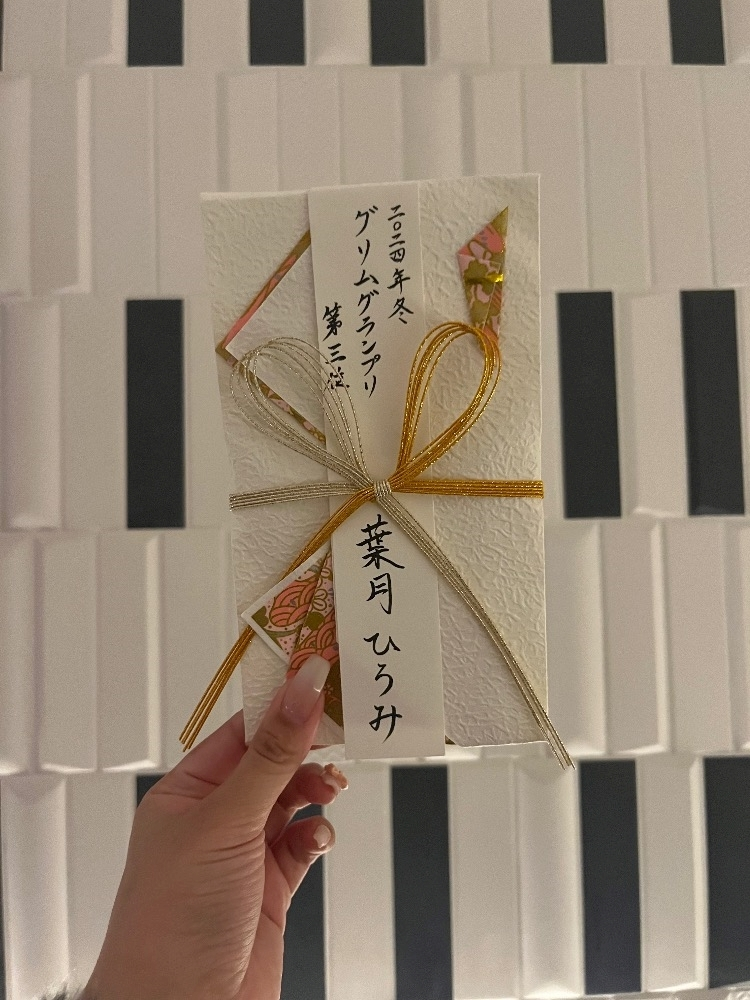 二〇二四年冬
グリムグランプリ
第三位
葉月 ひろみ